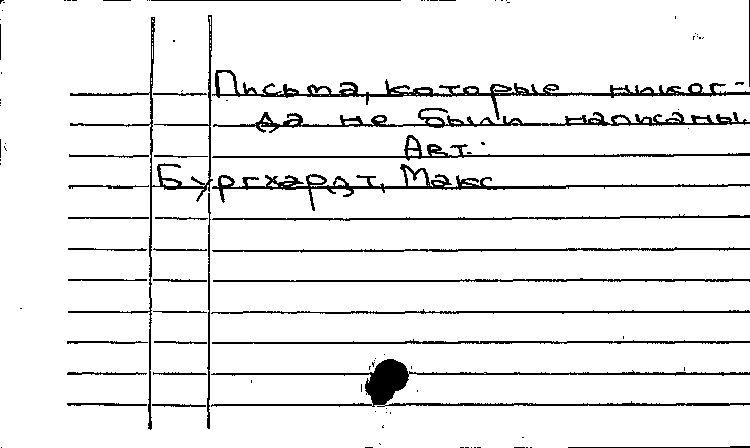 Письма, которые никог-
да не были написаны
Авт.:
Бургхардт, Макс